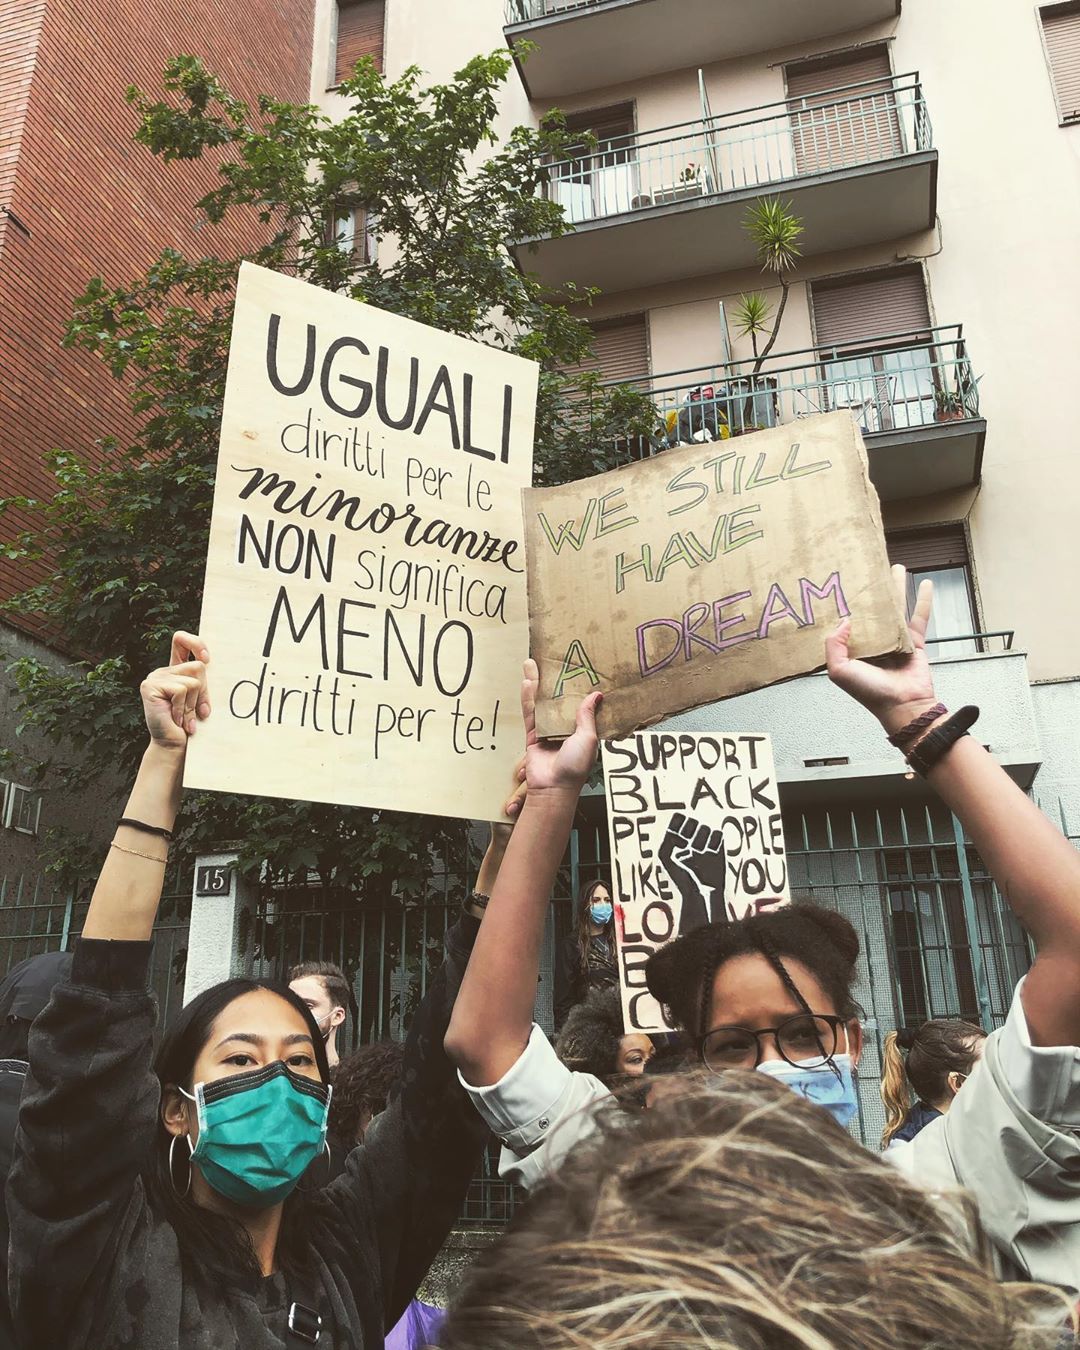 UGUALI
diritti per le
minoranze
NON significa
MENO
diritti per te!
WE STILL
HAVE
A DREAM
SUPPORT
BLACK
PEOPLE
LIKE YOU
LOVE
15